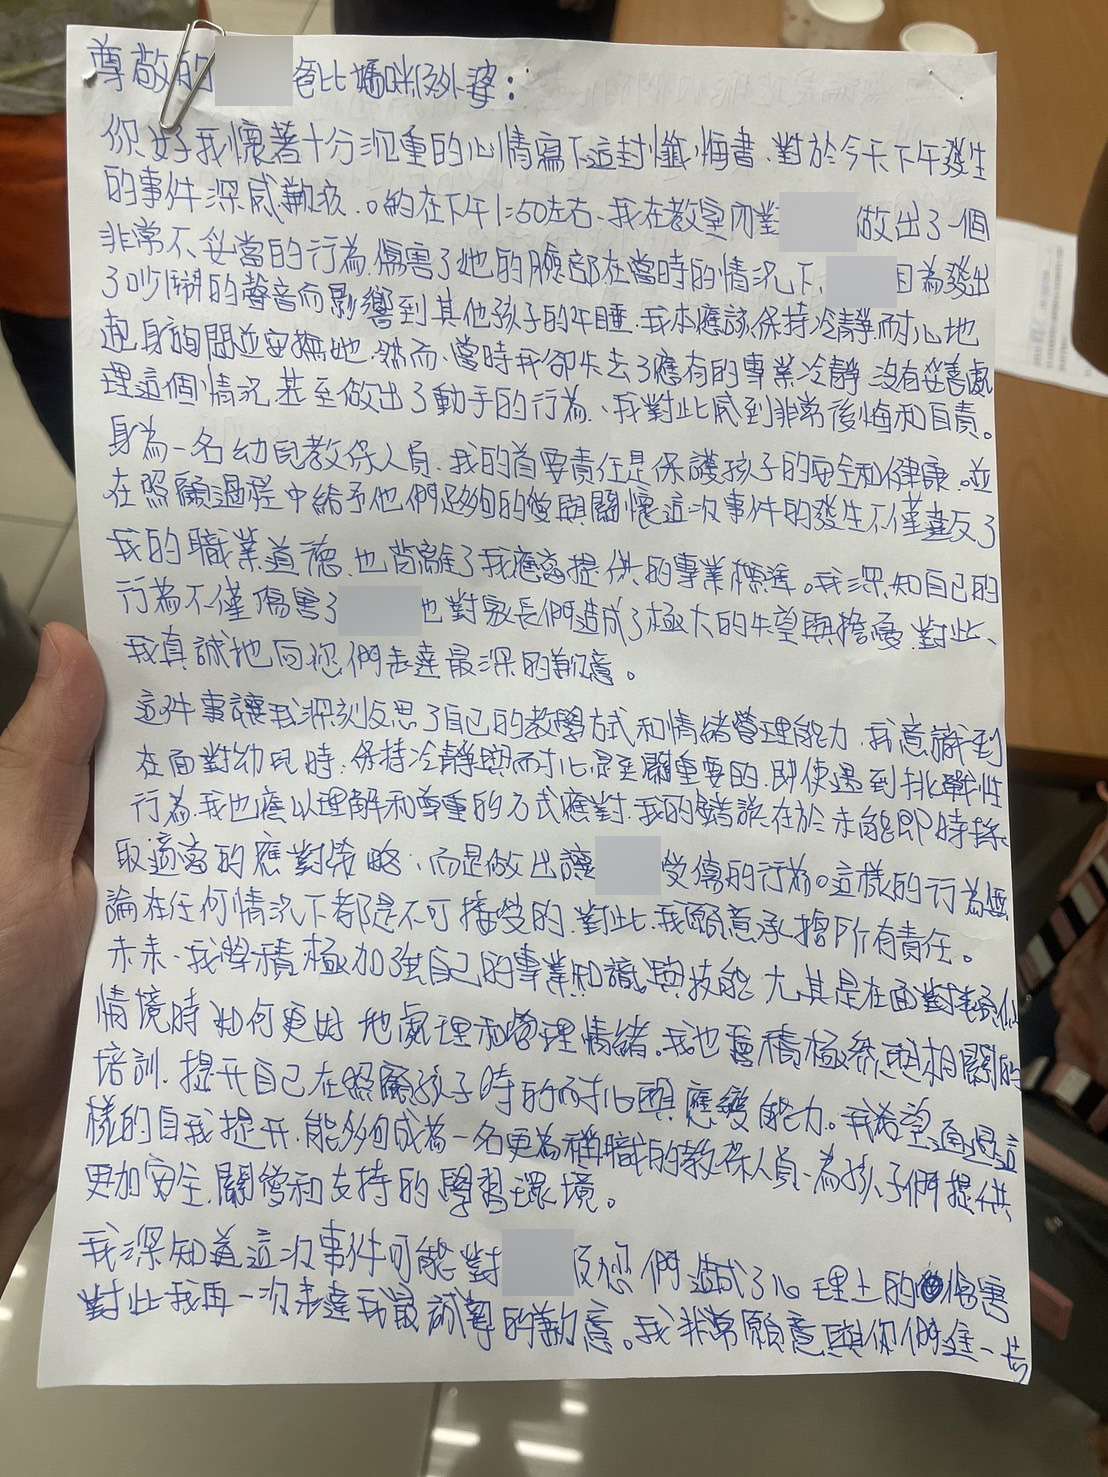 尊敬的 爸比媽咪及外婆：
你好我懷著十分沉重的心情寫下這封懺悔書、對於今天下午發生
的事件深感歉疚、。約在下午1:50左右、我在教室內對 做出了一個
非常不妥當的行為、傷害了她的臉部在當時的情況下、 因為發出
了吵鬧的聲音而影響到其他孩子的午睡、我本應該保持冷靜、耐心地
起身詢問並安撫她、然而、當時我卻失去了應有的專業冷靜、沒有妥善處
理這個情況、甚至做出了動手的行為、我對此感到非常後悔和自責。
身為一名幼兒教保人員、我的首要責任是保護孩子的安全和健康。並
在照顧過程中給予他們足夠的愛與關懷這次事件的發生不僅違反了
我的職業道德、也背離了我應當提供的專業標準。我深知自己的
行為不僅傷害了 也對家長們造成了極大的失望與擔憂、對此、
我真誠地向您們表達最深的歉意。
這件事讓我深刻反思了自己的教學方式和情緒管理能力、我意識到
在面對幼兒時、保持冷靜與耐心是至關重要的、即使遇到挑戰性
行為、我也應以理解和尊重的方式應對、我的錯誤在於未能即時採
取適當的應對策略、而是做出讓 受傷的行為。這樣的行為無
論在任何情況下都是不可接受的、對此、我願意承擔所有責任。
未來、我學積極加強自己的專業知識與技能、尤其是在面對類似
情境時如何更好地處理和管理情緒。我也會積極參與相關的
培訓、提升自己在照顧孩子時的耐心與應變能力。我希望通過這
樣的自我提升、能夠成為一名更為稱職的教保人員、為孩子們提供
更加安全、關愛和支持的學習環境。
我深知道這次事件可能對 及您們造成了心理上的傷害
對此我再一次表達我最誠摯的歉意。我非常願意與你們進一步